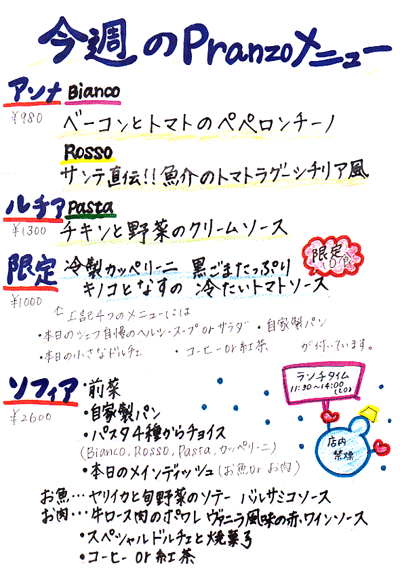 今週のPranzoメニュー
アンナ Bianco
¥980
ベーコンとトマトのペペロンチーノ
Rosso
サンテ直伝!! 魚介のトマトラグーシチリア風
ルチア Pasta
¥1300
チキンと野菜のクリームソース
限定 冷製カッペリーニ 黒ごまたっぷり
限定
¥1000
キノコとなすの 冷たいトマトソース
上記4つのメニューには
・本日のシェフ自慢のヘルシースープ or サラダ ・自家製パン
・本日の小さなドルチェ ・コーヒー or 紅茶 が付いています。
ソフィア ・前菜
¥2600
・自家製パン
・パスタ4種からチョイス
(Bianco, Rosso, Pasta, カッペリーニ)
・本日のメインディッシュ (お魚 or お肉)
ランチタイム
11:30〜14:00
(LO)
店内
禁煙
お魚…ヤリイカと旬野菜のソテー バルサミコソース
お肉…牛ロース肉のポワレ ヴァニラ風味の赤ワインソース
・スペシャルドルチェと焼菓子
・コーヒー or 紅茶